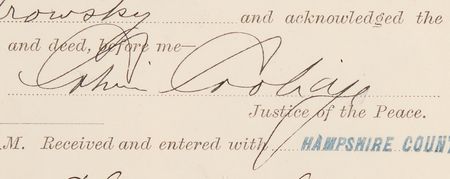 rowsky and acknowledged the
and deed, before me—
Calvin Coolidge
Justice of the Peace.
M. Received and entered with HAMPSHIRE COUNT